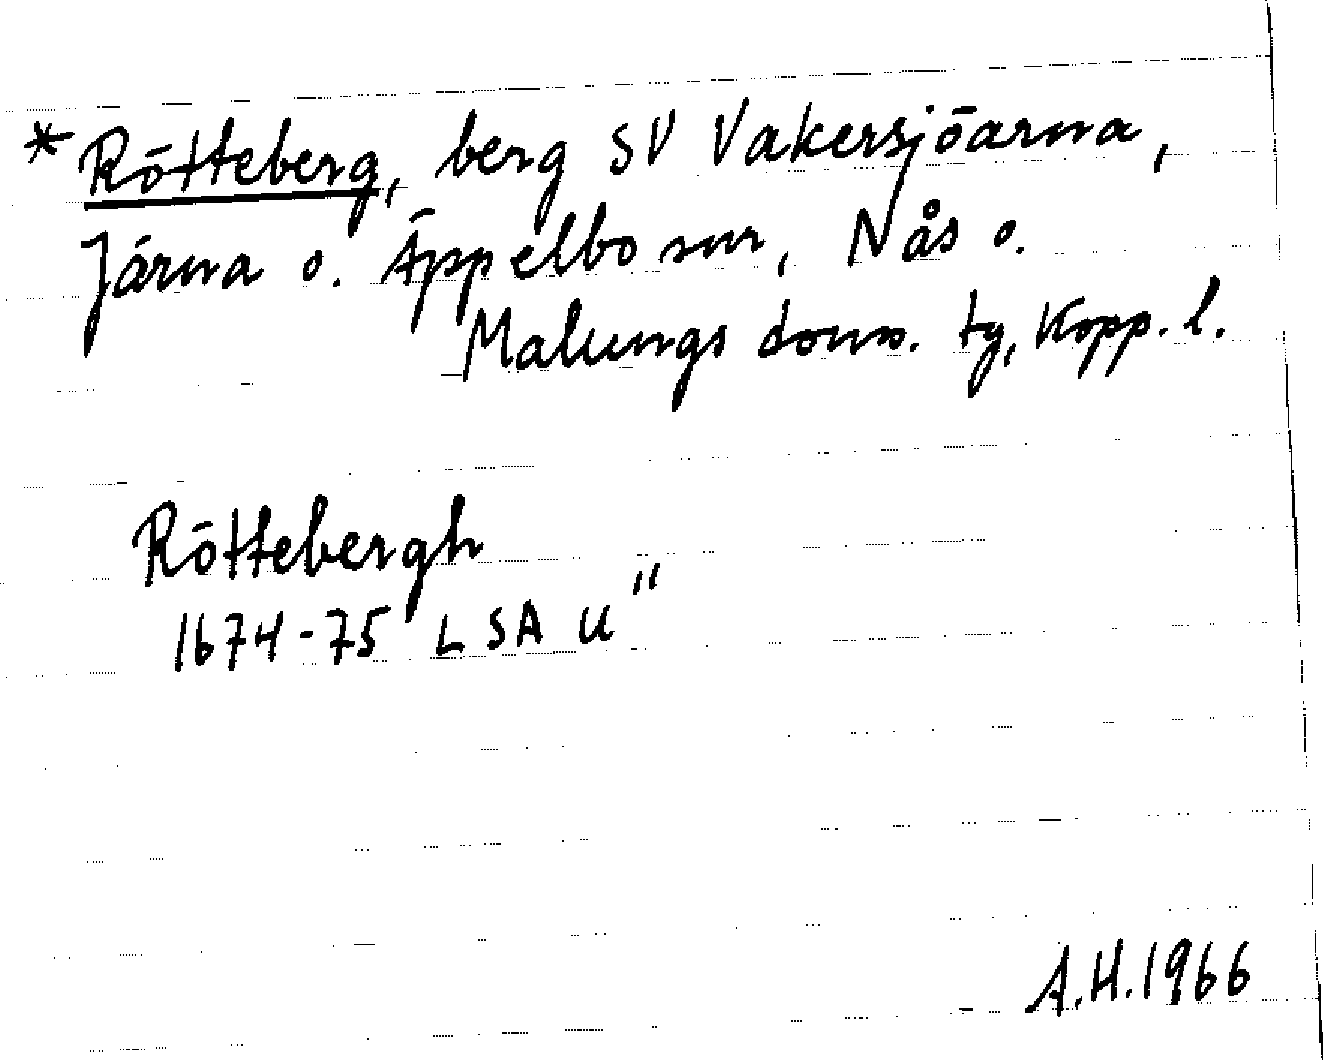 *Rötteberg, berg SV Vakersjöarna,
Järna o. Äppelbo snr, Nås o.
Malungs doms. tg, Kopp. l.
Röttebergh
1674-75 LSA U"
A.H.1966